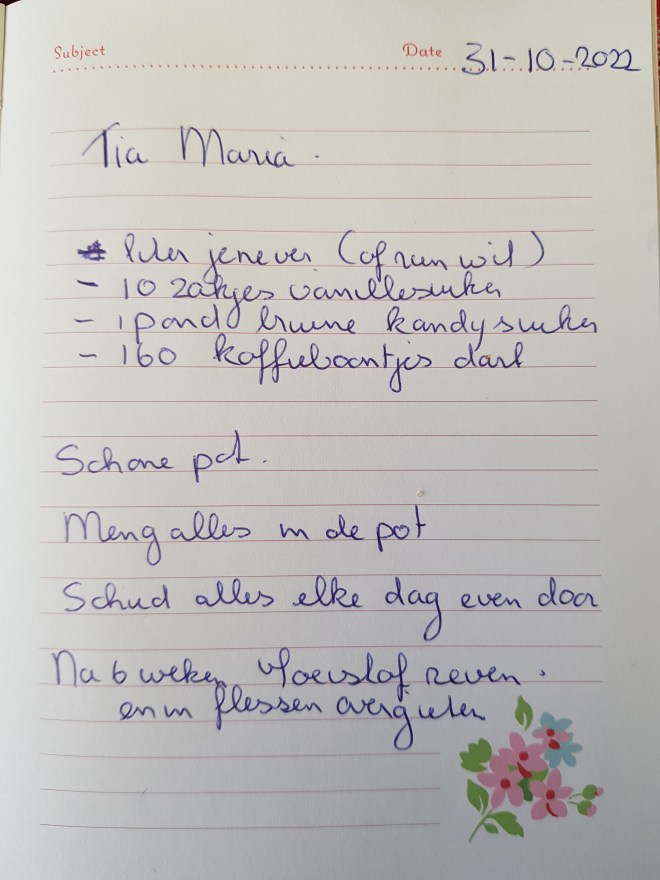 Subject Date 31-10-2022
Tia Maria.
- liter jenever (of rum wit)
- 10 zakjes vanillesuiker
- 1 pond bruine kandysuiker
- 160 koffieboontjes dark
Schone pot.
Meng alles in de pot
Schud alles elke dag even door
Na 6 weken vloeistof zeven.
en in flessen overgieten